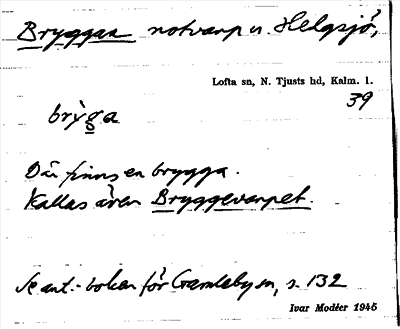 Bryggan notvarp n. Helgsjö,
Lofta sn, N. Tjusts hd, Kalm. l.
39
brỳg̲a
Där finns en brygga.
Kallas även Bryggevarpet.
Se ant.-boken för Gamleby sn, s. 132
Ivar Modéer 1945